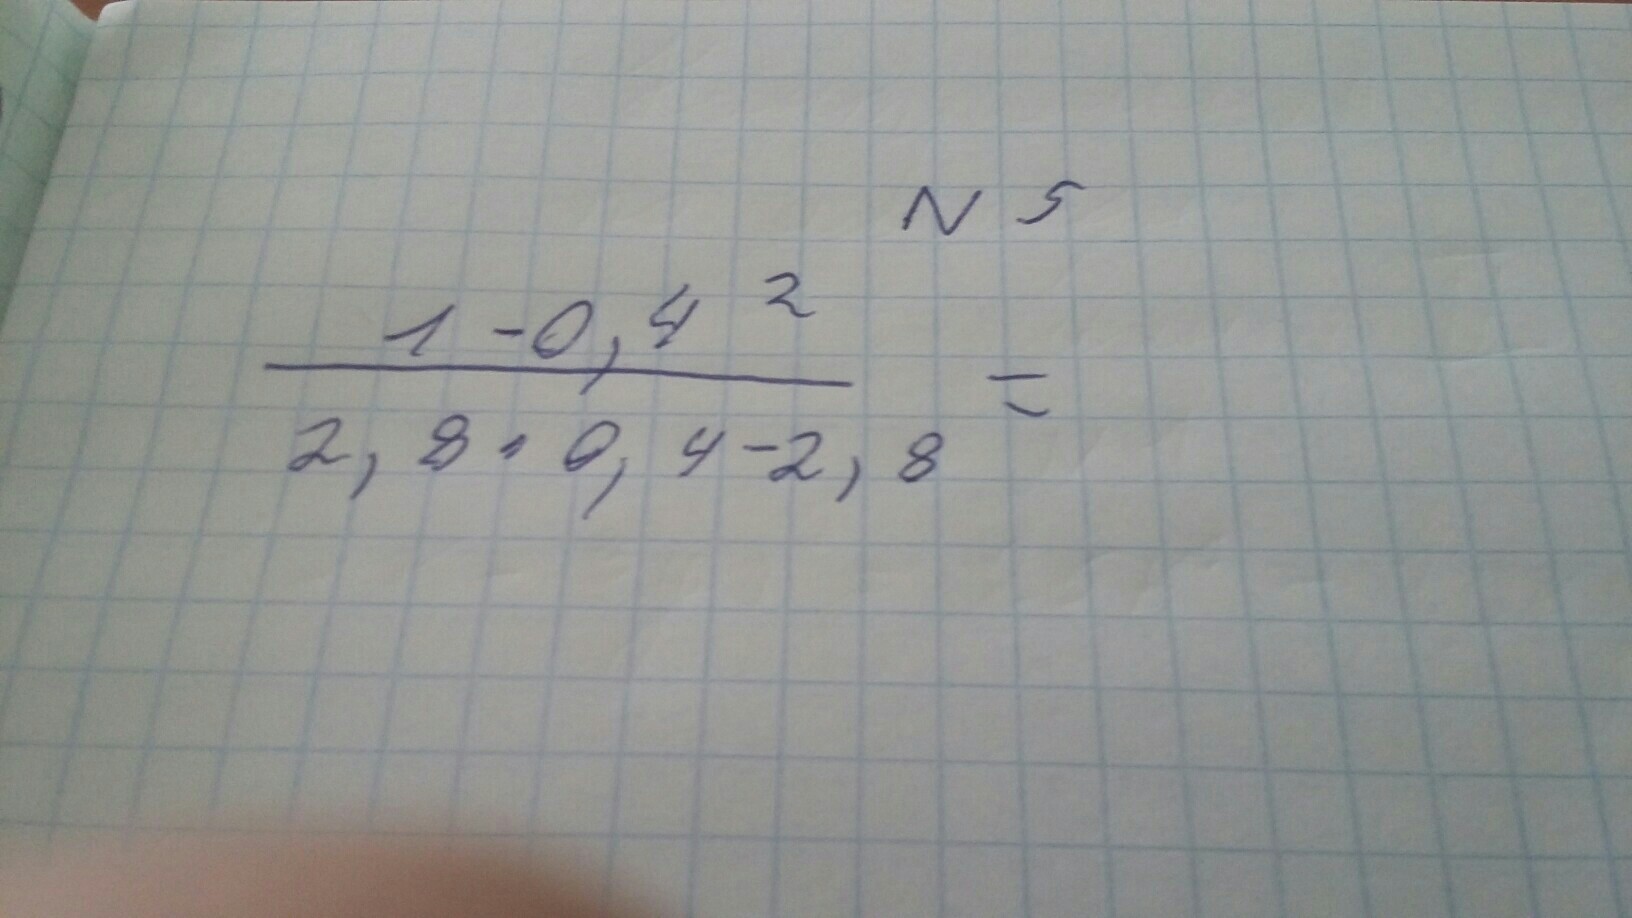 N 5
1 - 0,4²
2,8 · 0,4 - 2,8 =